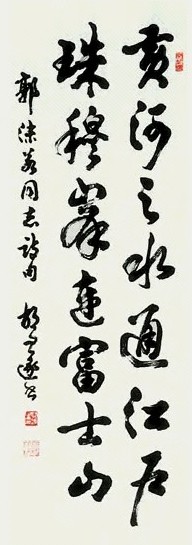 黄河之水通江户
珠穆峯连富士山
郭沫若同志诗句 胡问遂书